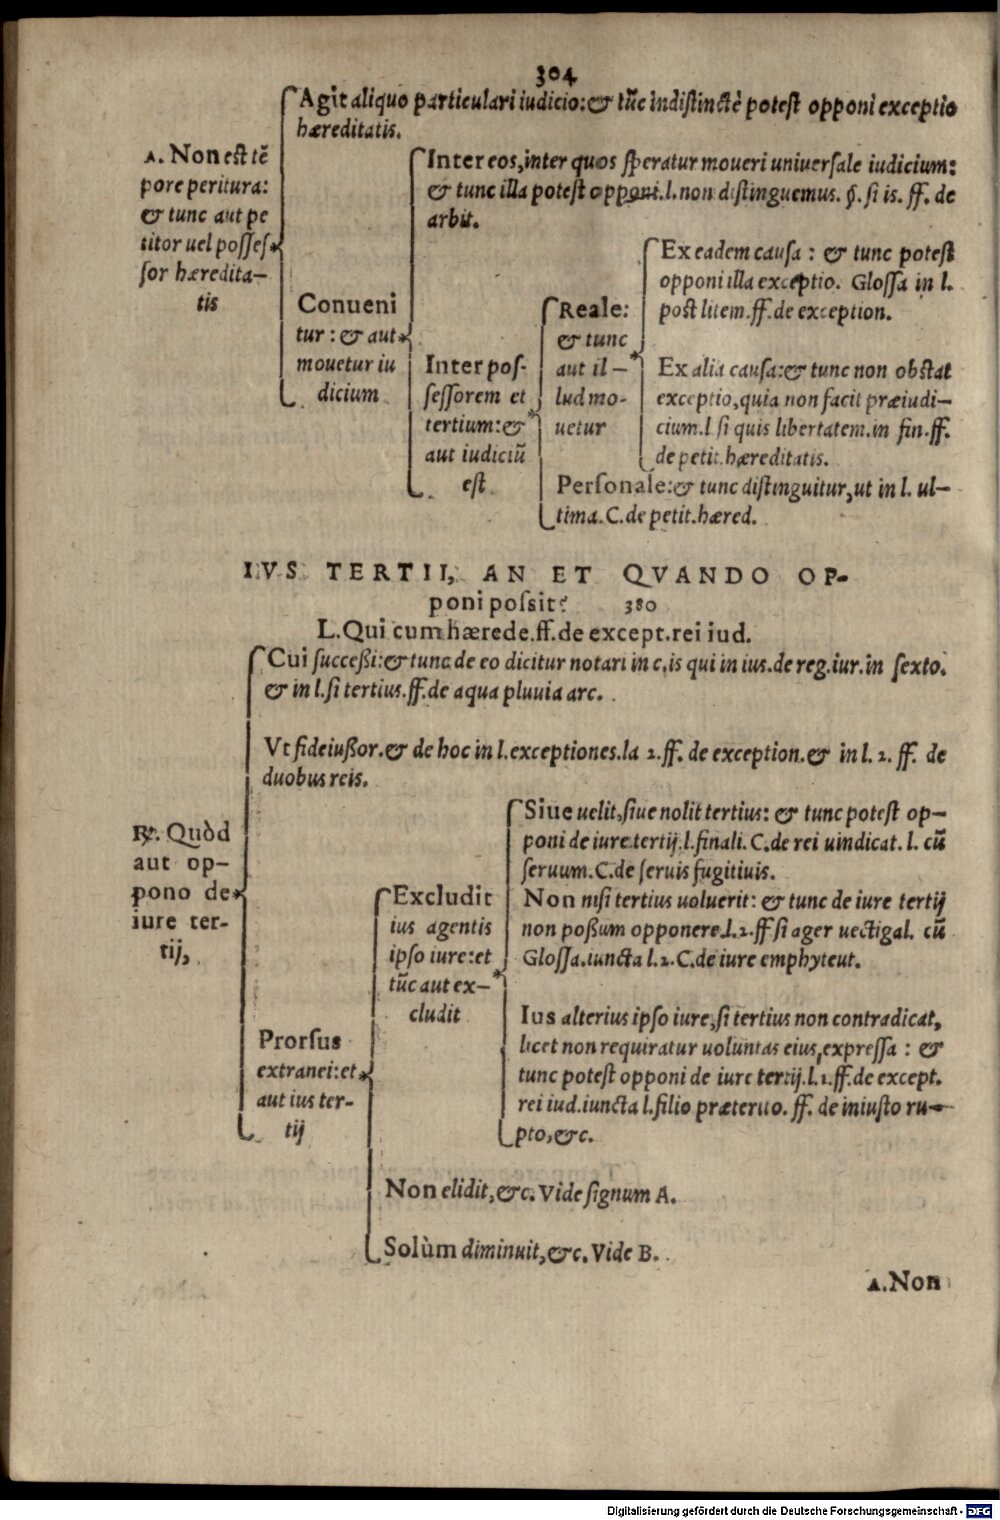 304
A. Non est tẽ
pore peritura:
& tunc aut pe
titor uel posses
sor hæredita-
tis
Agit aliquo particulari iudicio: & tũc indistinctè potest opponi exceptio
hæreditatis.
Conueni
tur: & aut
mouetur iu
dicium
Inter eos, inter quos speratur moueri uniuersale iudicium:
& tunc illa potest opponi. l. non distinguemus. §. si is. ff. de
arbit.
Inter pos-
sessorem et
tertium: &
aut iudiciũ
est
Reale:
& tunc
aut il-
lud mo-
uetur
Ex eadem causa: & tunc potest
opponi illa exceptio. Glossa in l.
post litem. ff. de exception.
Ex alia causa: & tunc non obstat
exceptio, quia non facit præiudi-
cium. l si quis libertatem. in fin. ff.
de petit. hæreditatis.
Personale: & tunc distinguitur, ut in l. ul-
tima. C. de petit. hæred.
IVS TERTII, AN ET QVANDO OP-
poni possit? 380
L. Qui cum hærede. ff. de except. rei iud.
℞. Quòd
aut op-
pono de
iure ter-
tij,
Cui successi: & tunc de eo dicitur notari in c. is qui in ius. de reg. iur. in sexto.
& in l. si tertius. ff. de aqua pluuia arc.
Vt fideiussor. & de hoc in l. exceptiones. la 2. ff. de exception. & in l. 2. ff. de
duobus reis.
Prorsus
extranei: et
aut ius ter-
tij
Excludit
ius agentis
ipso iure: et
tũc aut ex-
cludit
Siue uelit, siue nolit tertius: & tunc potest op-
poni de iure tertij. l. finali. C. de rei uindicat. l. cũ
seruum. C. de seruis fugitiuis.
Non nisi tertius uoluerit: & tunc de iure tertij
non possum opponere. l. 2. ff si ager uectigal. cũ
Glossa. iuncta l. 2. C. de iure emphyteut.
Ius alterius ipso iure, si tertius non contradicat,
licet non requiratur uoluntas eius, expressa: &
tunc potest opponi de iure tertij. l. 1. ff. de except.
rei iud. iuncta l. filio præterito. ff. de iniusto ru-
pto, &c.
Non elidit, &c. Vide signum A.
Solùm diminuit, &c. Vide B.
A. Non
Digitalisierung gefördert durch die Deutsche Forschungsgemeinschaft - DFG